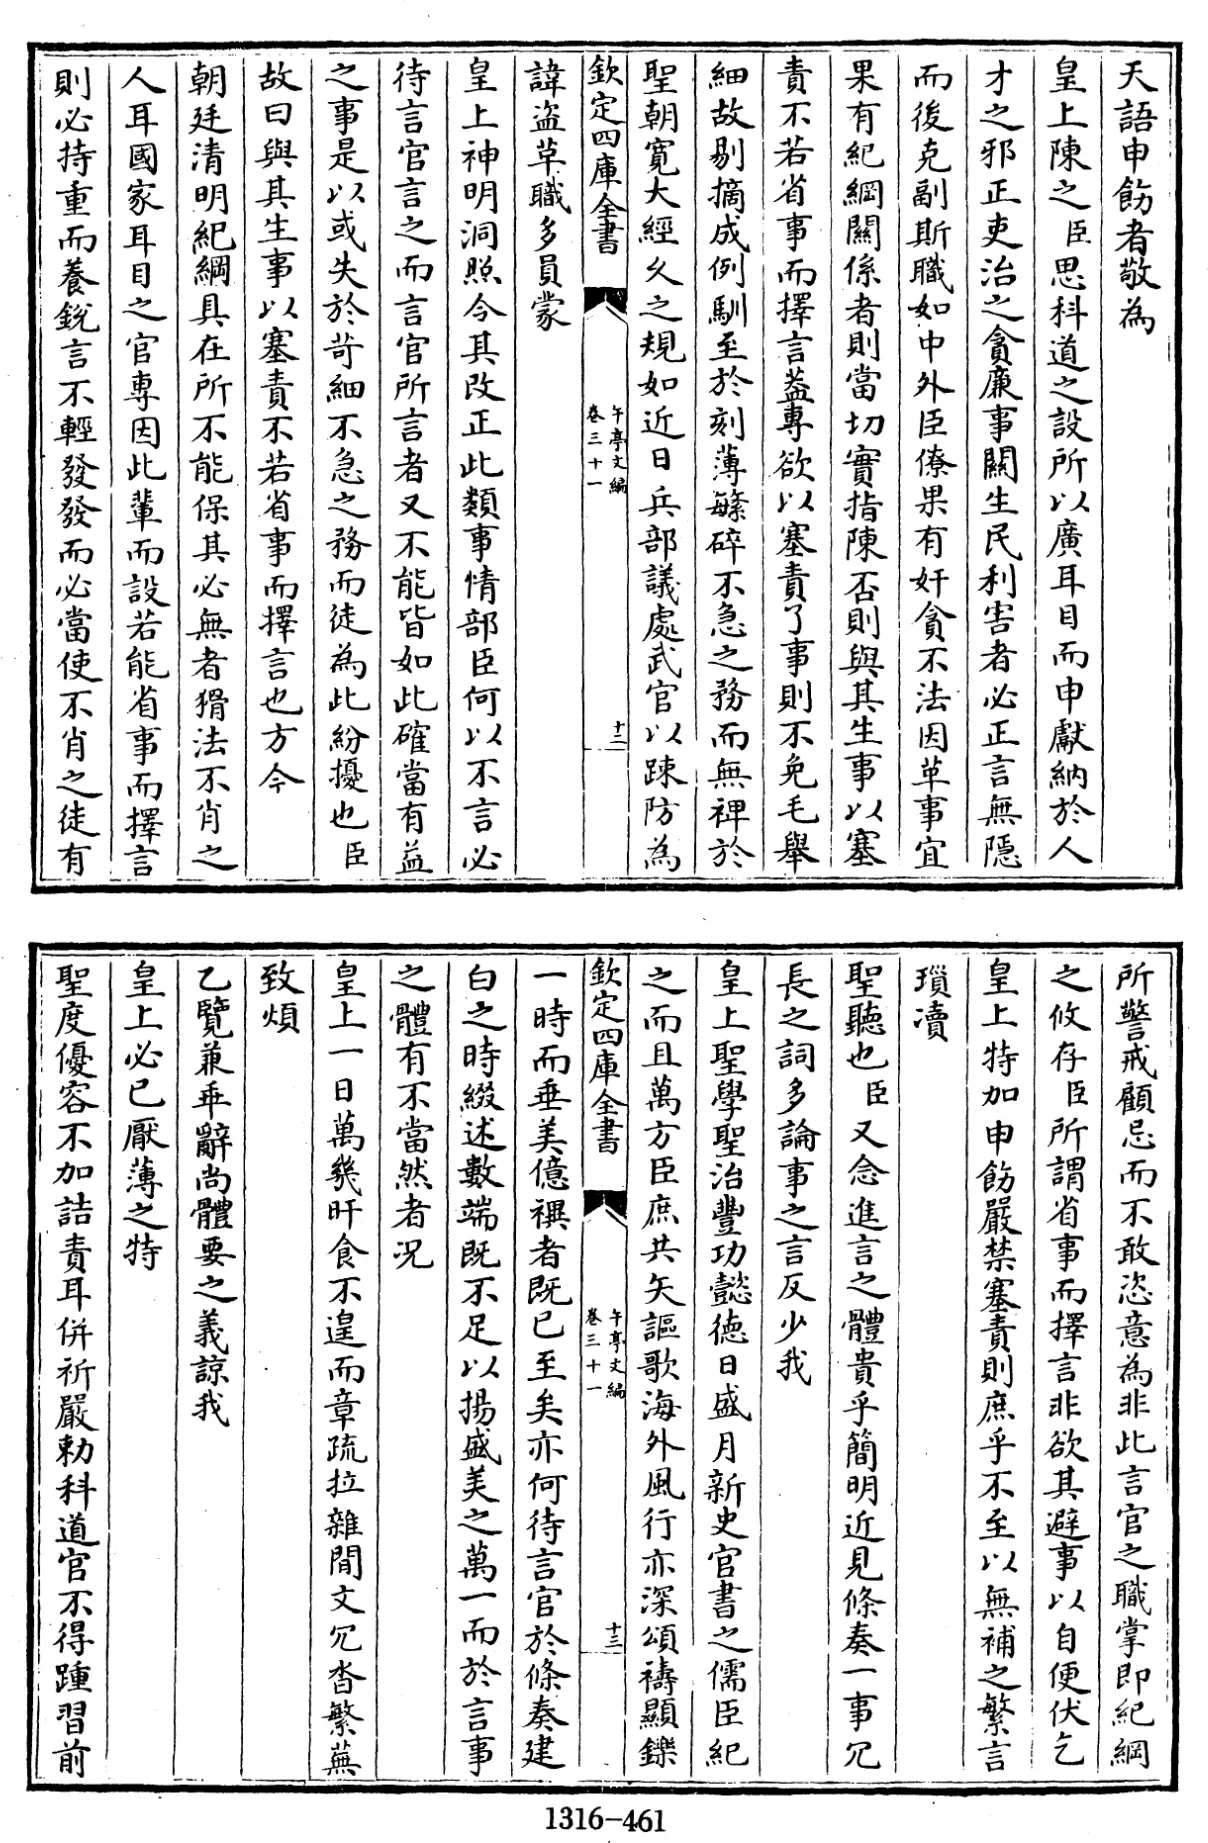 天語申飭者敬為
皇上陳之臣思科道之設所以廣耳目而申獻納於人
才之邪正吏治之貪廉事關生民利害者必正言無隱
而後克副斯職如中外臣僚果有奸貪不法因革事宜
果有紀綱關係者則當切實指陳否則與其生事以塞
責不若省事而擇言葢專欲以塞責了事則不免毛舉
細故剔摘成例馴至於刻薄繁碎不急之務而無裨於
聖朝寛大經久之規如近日兵部議處武官以踈防為
欽定四庫全書
午亭文編
卷三十一
十二
諱盗草職多員蒙
皇上神明洞照令其改正此類事情部臣何以不言必
待言官言之而言官所言者又不能皆如此確當有益
之事是以或失於苛細不急之務而徒為此紛擾也臣
故曰與其生事以塞責不若省事而擇言也方今
朝廷清明紀綱具在所不能保其必無者猾法不肖之
人耳國家耳目之官專因此輩而設若能省事而擇言
則必持重而養銳言不輕發發而必當使不肖之徒有
所警戒顧忌而不敢恣意為非此言官之職掌即紀綱
之攸存臣所謂省事而擇言非欲其避事以自便伏乞
皇上特加申飭嚴禁塞責則庶乎不至以無補之繁言
瑣瀆
聖聽也臣又念進言之體貴乎簡明近見條奏一事冗
長之詞多論事之言反少我
皇上聖學聖治豐功懿德日盛月新史官書之儒臣紀
之而且萬方臣庶共矢謳歌海外風行亦深頌禱顯鑠
欽定四庫全書
午亭文編
卷三十一
十三
一時而垂美億禩者既已至矣亦何待言官於條奏建
白之時綴述數端既不足以揚盛美之萬一而於言事
之體有不當然者况
皇上一日萬幾旰食不遑而章疏拉雜間文冗沓繁蕪
致煩
乙覽兼乖辭尚體要之義諒我
皇上必已厭薄之特
聖度優容不加詰責耳併祈嚴勅科道官不得踵習前
1316-461